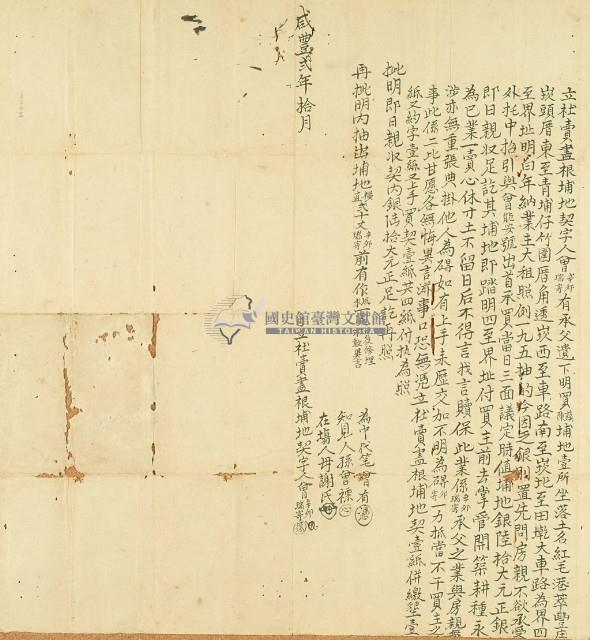 立杜賣盡根埔地契字人曾辛卯瑞寄有承父遺下明買蘇陳埔地壹所坐落土名紅毛港莘豐庄
崁頭厝東至青埔仔竹圍厝角透崁西至車路南至崁地至田墘大車路為界四
至界址明白年納業主大租照例一九五抽的今因乏銀別置先問房親不欲承受
外托中招引與曾能安號出首承買當日三面議定時值埔地銀陸拾大元正銀
即日親收足訖其埔地即踏明四至界址付買主前去掌管開築耕種永
為己業一賣心休寸土不留日后不得言找言贖保此業係辛卯瑞寄承父之業與房親無
涉亦無重張典掛他人為碍如有上手來歷交加不明為碍卯寄一力抵當不干買主之
事此係二比甘愿各無悔異言滋事口恐無憑立杜賣盡根埔地契壹紙併繳墾壹
紙又約字壹紙又上手買契壹紙共四紙付執為照
批明即日親收契內銀陸拾大元正足訖再照
再批明內抽出埔地橫直弍十丈辛卯瑞寄前有作
為中代筆曾有
知見人孫曾
在場人母謝氏
立杜賣盡根埔地契字人曾辛卯瑞寄
咸豐弍年拾月
國史館臺灣文獻館
TAIWAN HISTORICA